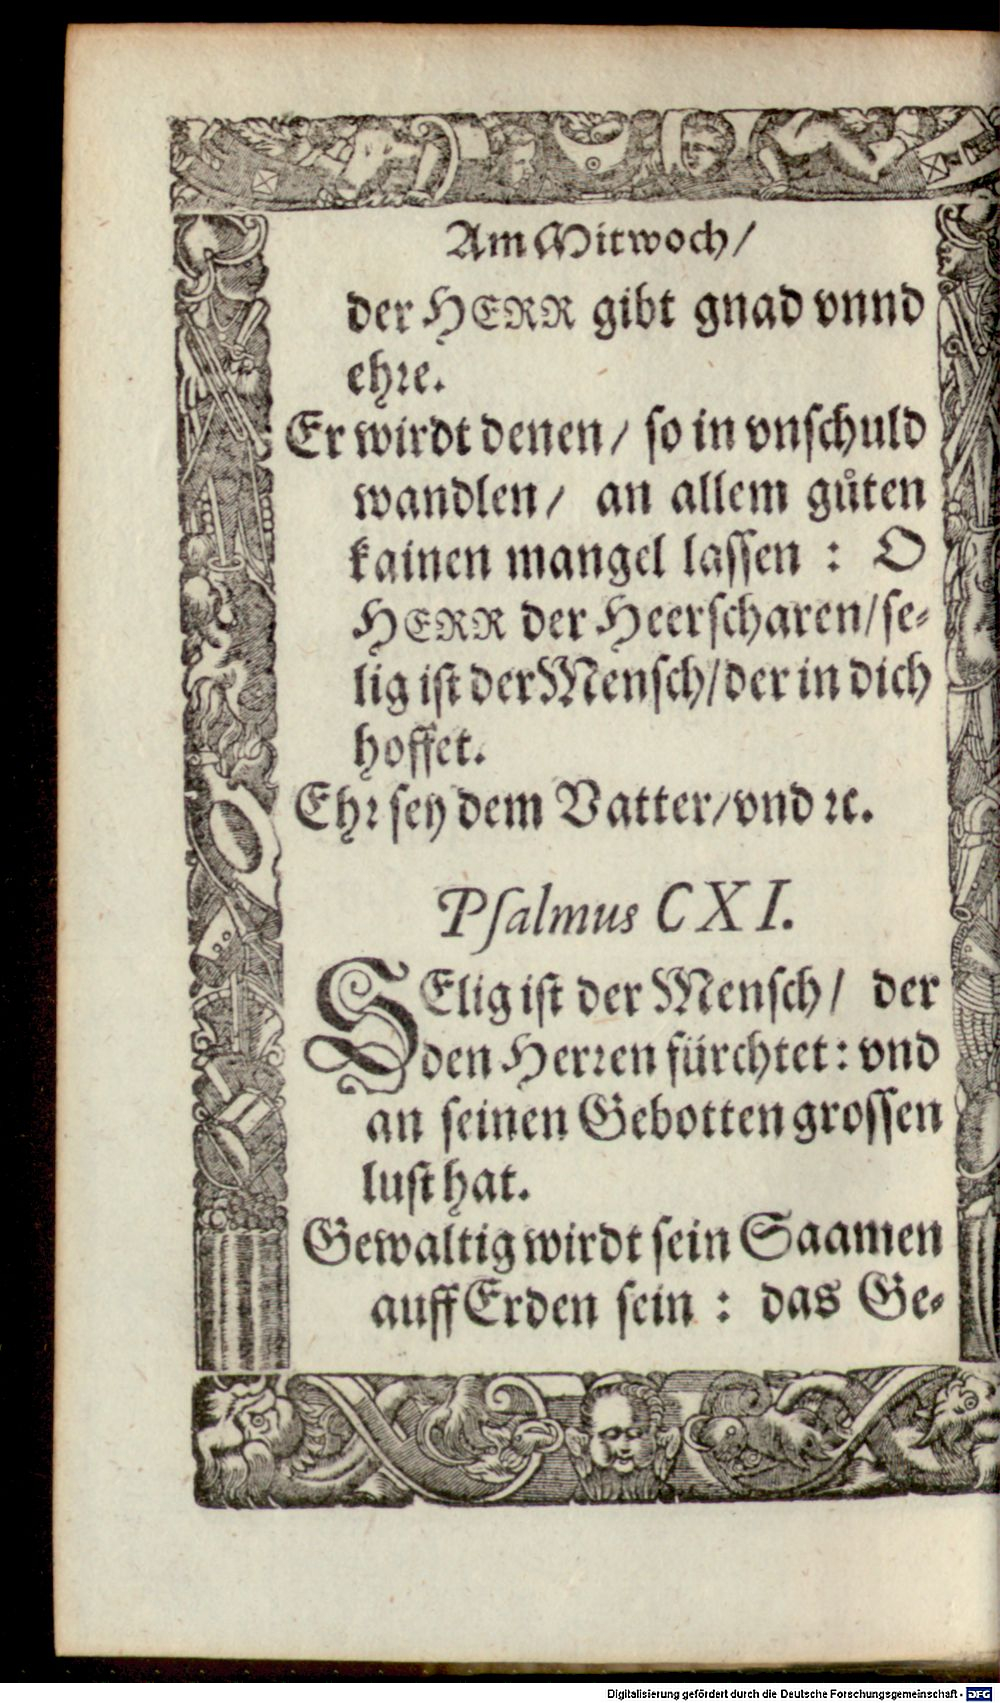 Am Mitwoch/
der HERR gibt gnad vnnd
ehꝛe.
Er wirdt denen/ so in vnschuld
wandlen/ an allem gůten
kainen mangel lassen : O
HERR der Heerscharen/se⸗
lig ist der Mensch/der in dich
hoffet.
Ehꝛ sey dem Vatter/vnd ꝛc.
Psalmus CXI.
SElig ist der Mensch/ der
den Herꝛen fürchtet: vnd
an seinen Gebotten grossen
lust hat.
Gewaltig wirdt sein Saamen
auff Erden sein : das Ge⸗
Digitalisierung gefördert durch die Deutsche Forschungsgemeinschaft - DFG